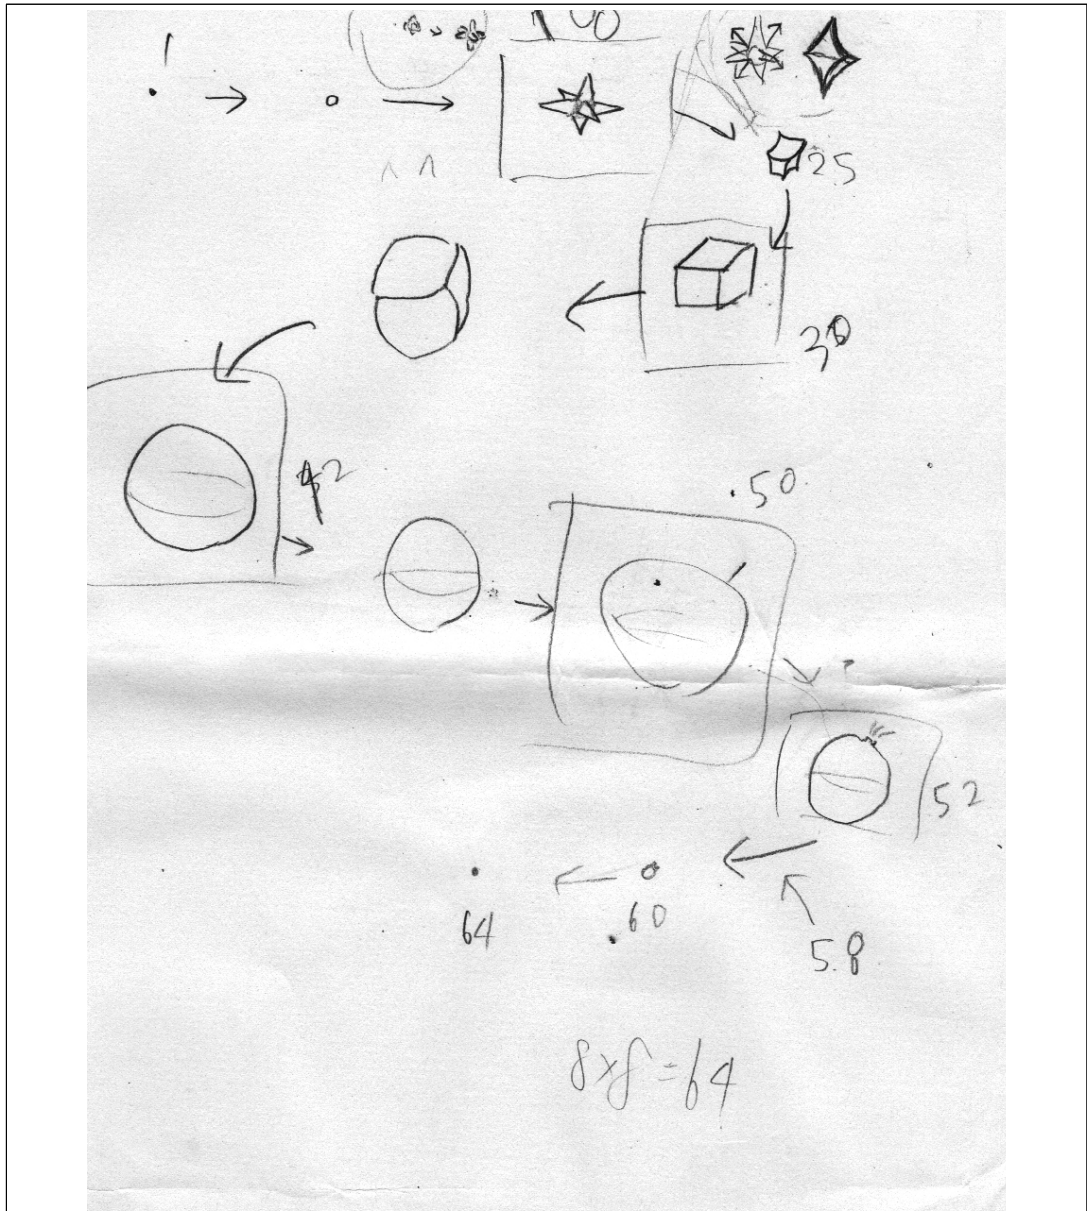 1
25
30
42
.50.
52
64
.60
58
8x8=64